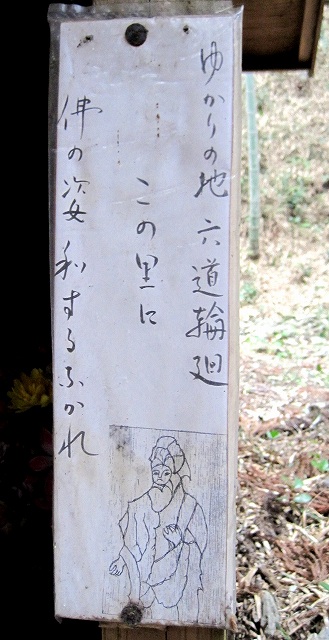 ゆかりの地 六道輪廻
この里に
佛の姿 利するふかれ